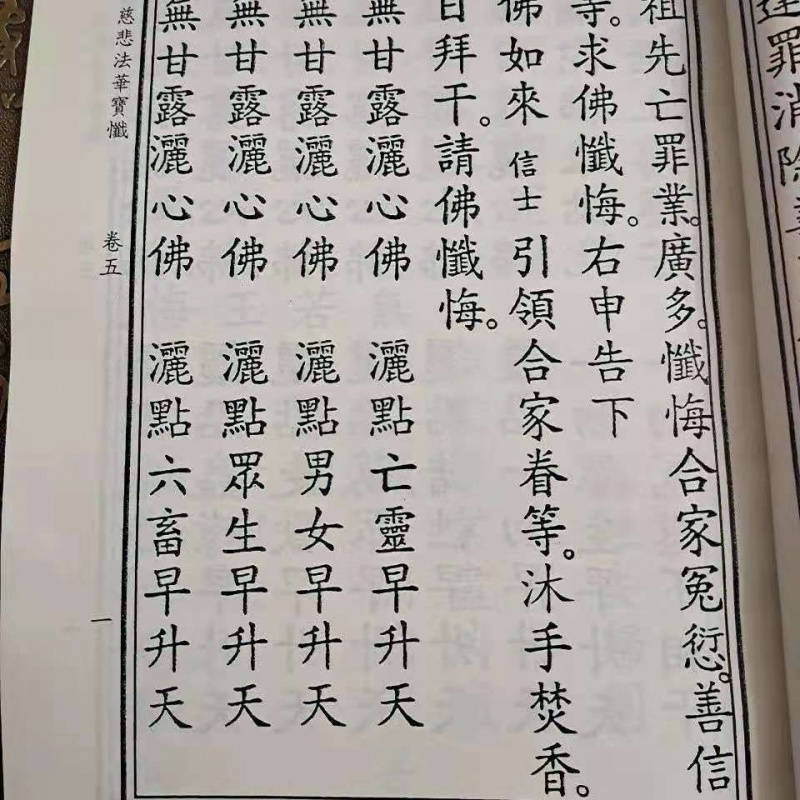 罪消除
祖先亡罪業。廣多。懺悔合家冤愆。善信
等。求佛懺悔。右申告下
佛如來 信士 引領合家眷等。沐手焚香。
日拜干。請佛懺悔。
無甘露灑心佛 灑點亡靈早升天
無甘露灑心佛 灑點男女早升天
無甘露灑心佛 灑點眾生早升天
無甘露灑心佛 灑點六畜早升天
慈悲法華寶懺 卷五 一